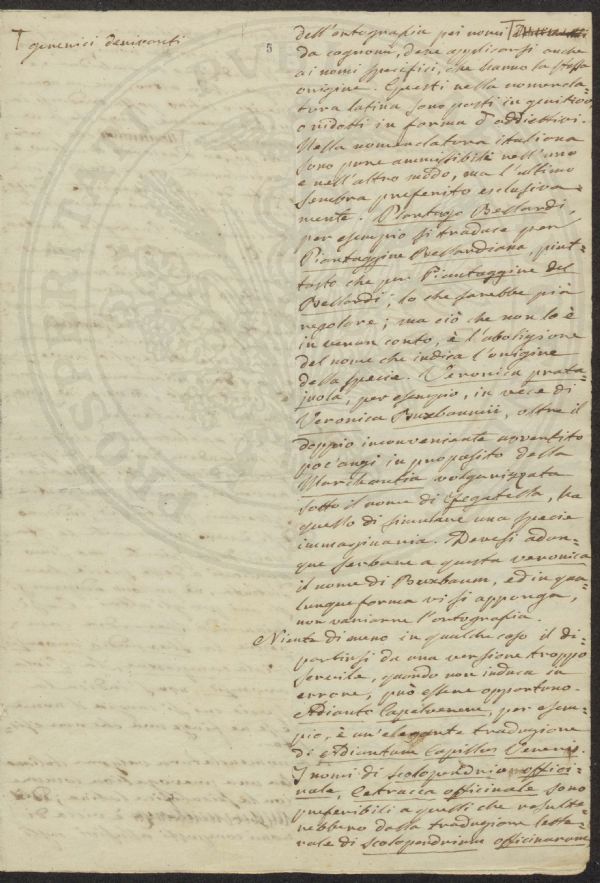 T generici derivanti
5
dell'ortografia pei nomi T
da cognomi, deve applicarsi anche
ai nomi specifici, che hanno la stessa
origine. Questi nella nomencla-
tura latina sono posti in genitivo,
o ridotti in forma d'addiettivi.
Nella nomenclatura italiana
sono pure ammissibili nell'uno
e nell'altro modo, ma l'ultimo
sembra preferito esclusiva-
mente. Plantago Bellardi,
per esempio si traduce per
Piantaggine Bellardiana, piut-
tosto che per Piantaggine del
Bellardi; lo che sarebbe più
regolare; ma ciò che non lo è
in verun conto, è l'abolizione
del nome che indica l'origine
della specie. Veronica prata-
juola, per esempio, in vece di
Veronica Buxbaumii, oltre il
doppio inconveniente avvertito
poc'anzi in proposito della
Marchantia volgarizzata
sotto il nome di Fegatella, ha
quello di simulare una specie
immaginaria. Devesi adun-
que serbare a questa veronica
il nome di Buxbaum, ed in qua-
lunque forma vi si apponga,
non variarne l'ortografia.
Niente di meno in qualche caso il di-
partirsi da una versione troppo
servile, quando non induca in
errore, può essere opportuno.
Adianto Capelvenere, per esem-
pio, è un'elegante traduzione
di Adiantum Capillus Veneris.
I nomi di scolopendria offici-
nale, Cetracca officinale sono
preferibili a quelli che resulte-
rebbero dalla traduzione lette-
rale di scolopendrium officinarum